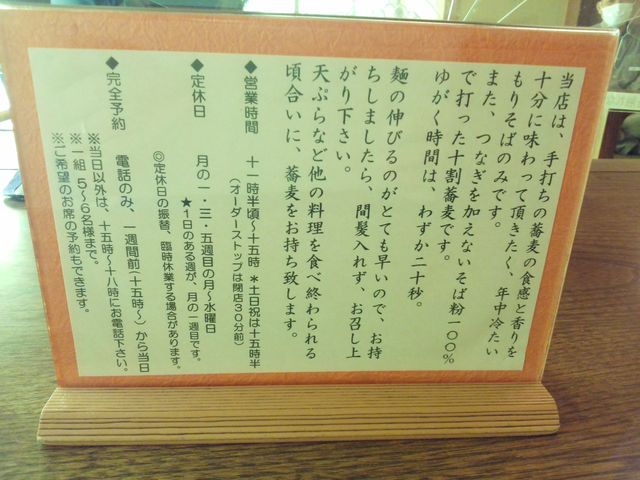 当店は、手打ちの蕎麦の食感と香りを
十分に味わって頂きたく、年中冷たい
もりそばのみです。
また、つなぎを加えないそば粉一〇〇%
で打った十割蕎麦です。
ゆがく時間は、わずか二十秒。
麺の伸びるのがとても早いので、お持
ちしましたら、間髪入れず、お召し上
がり下さい。
天ぷらなど他の料理を食べ終わられる
頃合いに、蕎麦をお持ち致します。
◆営業時間 十一時半頃〜十五時 *土日祝は十五時半
(オーダーストップは閉店30分前)
◆定休日 月の一・三・五週目の月〜水曜日
★1日のある週が、月の一週目です。
◎定休日の振替、臨時休業する場合があります。
◆完全予約 電話のみ、一週間前(十五時〜)から当日
※当日以外は、十五時〜十八時にお電話下さい。
※一組 5〜6名様まで。
※ご希望のお席の予約もできます。